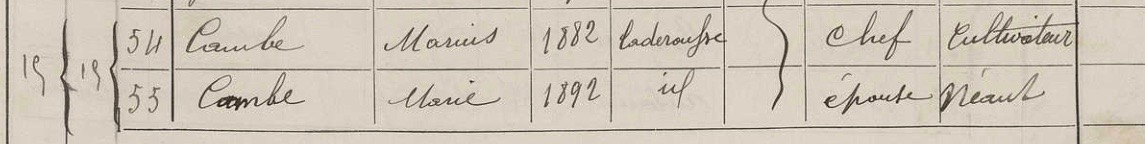 19 19 54 Cambe Marius 1882 Caderousse Chef Cultivateur
55 Cambe Marie 1892 id épouse Néant